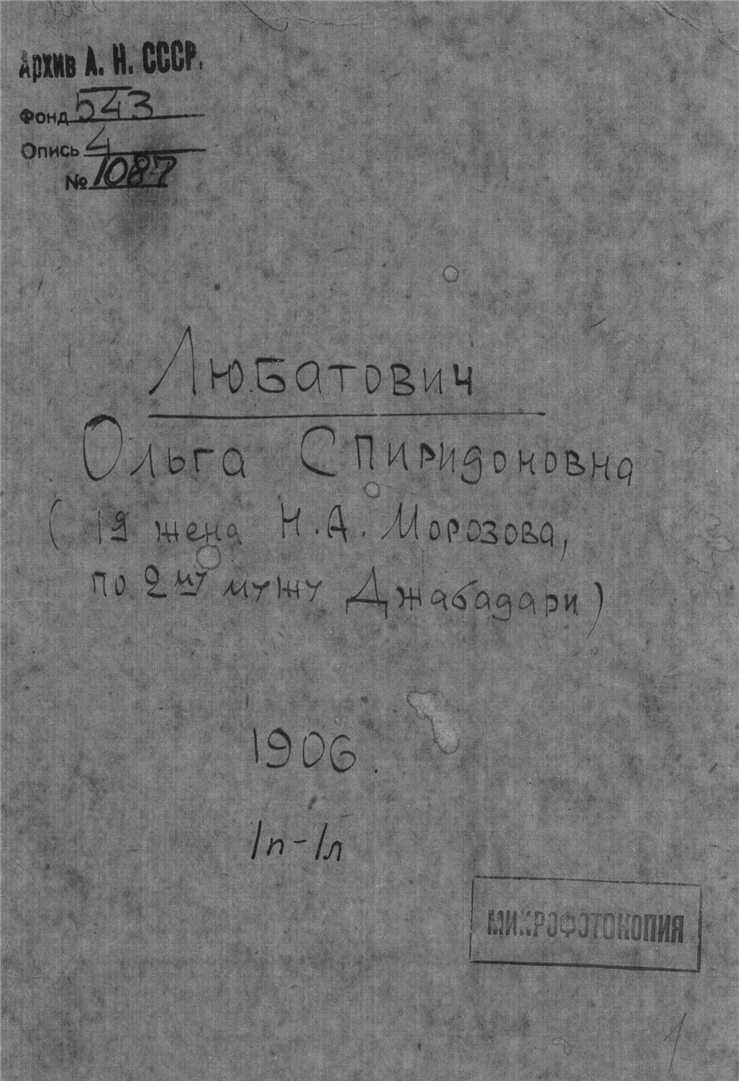 Архив А. Н. СССР.
Фонд 543
Опись 4
№ 1087
Любатович
Ольга Спиридоновна
(1я жена Н.А. Морозова,
по 2му мужу Джабадари)
1906.
1п-1л
МИКРОФОТОКОПИЯ
1